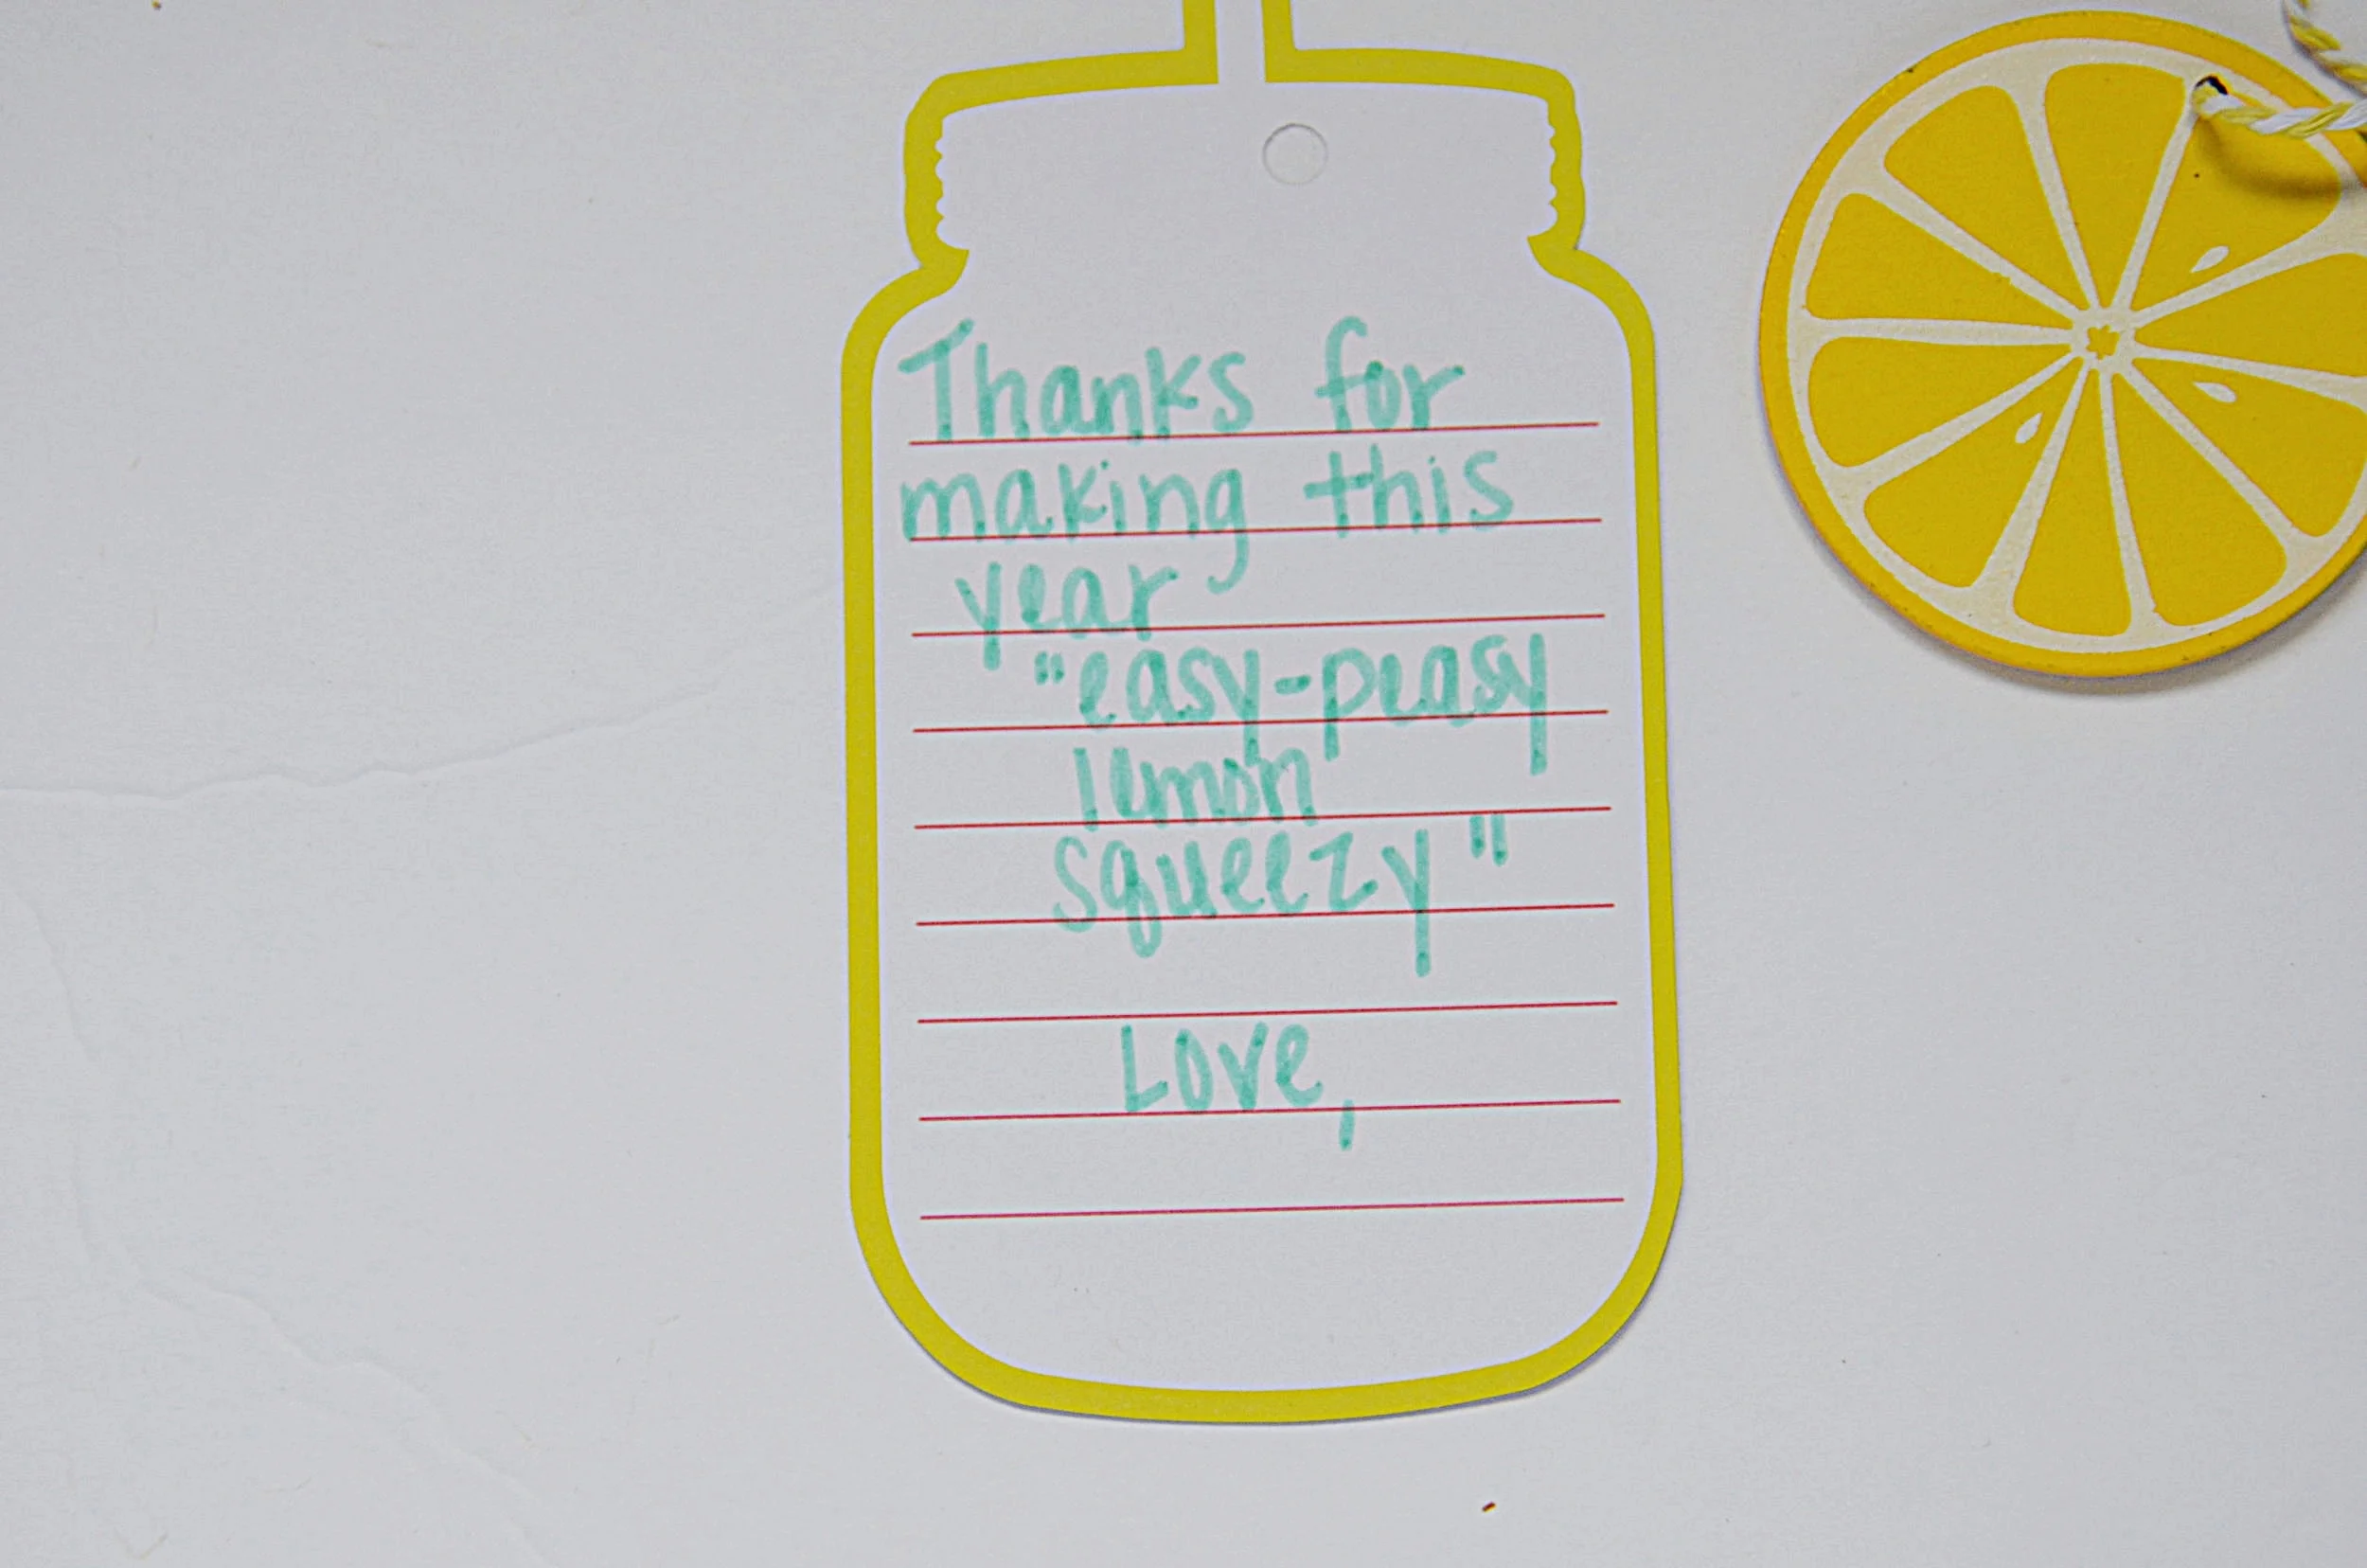 Thanks for
making this
year
"easy-peasy
lemon
squeezy"
Love,